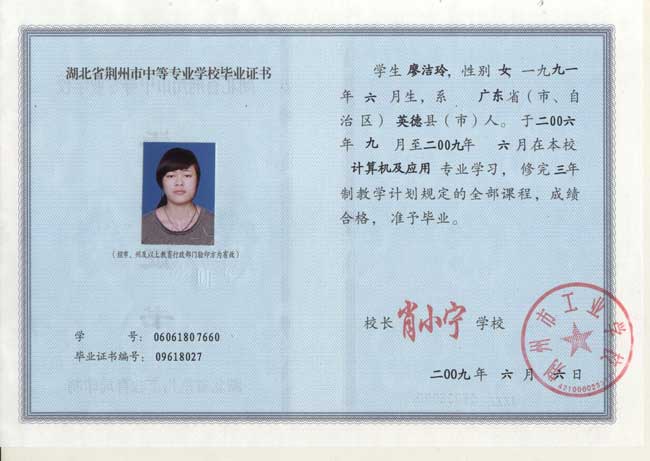 湖北省荆州市中等专业学校毕业证书
(经市、州及以上教育行政部门验印方为有效)
学 号: 06061807660
毕业证书编号: 09618027
学生 廖洁玲, 性别 女 一九九一
年 六 月生, 系 广东省 (市、自
治区) 英德县 (市) 人。于二00六
年 九 月至二00九年 六月在本校
计算机及应用 专业学习, 修完三年
制教学计划规定的全部课程, 成绩
合格, 准予毕业。
校长 肖小宁 学校
荆州市工业学校
二00九年 六 月 六 日